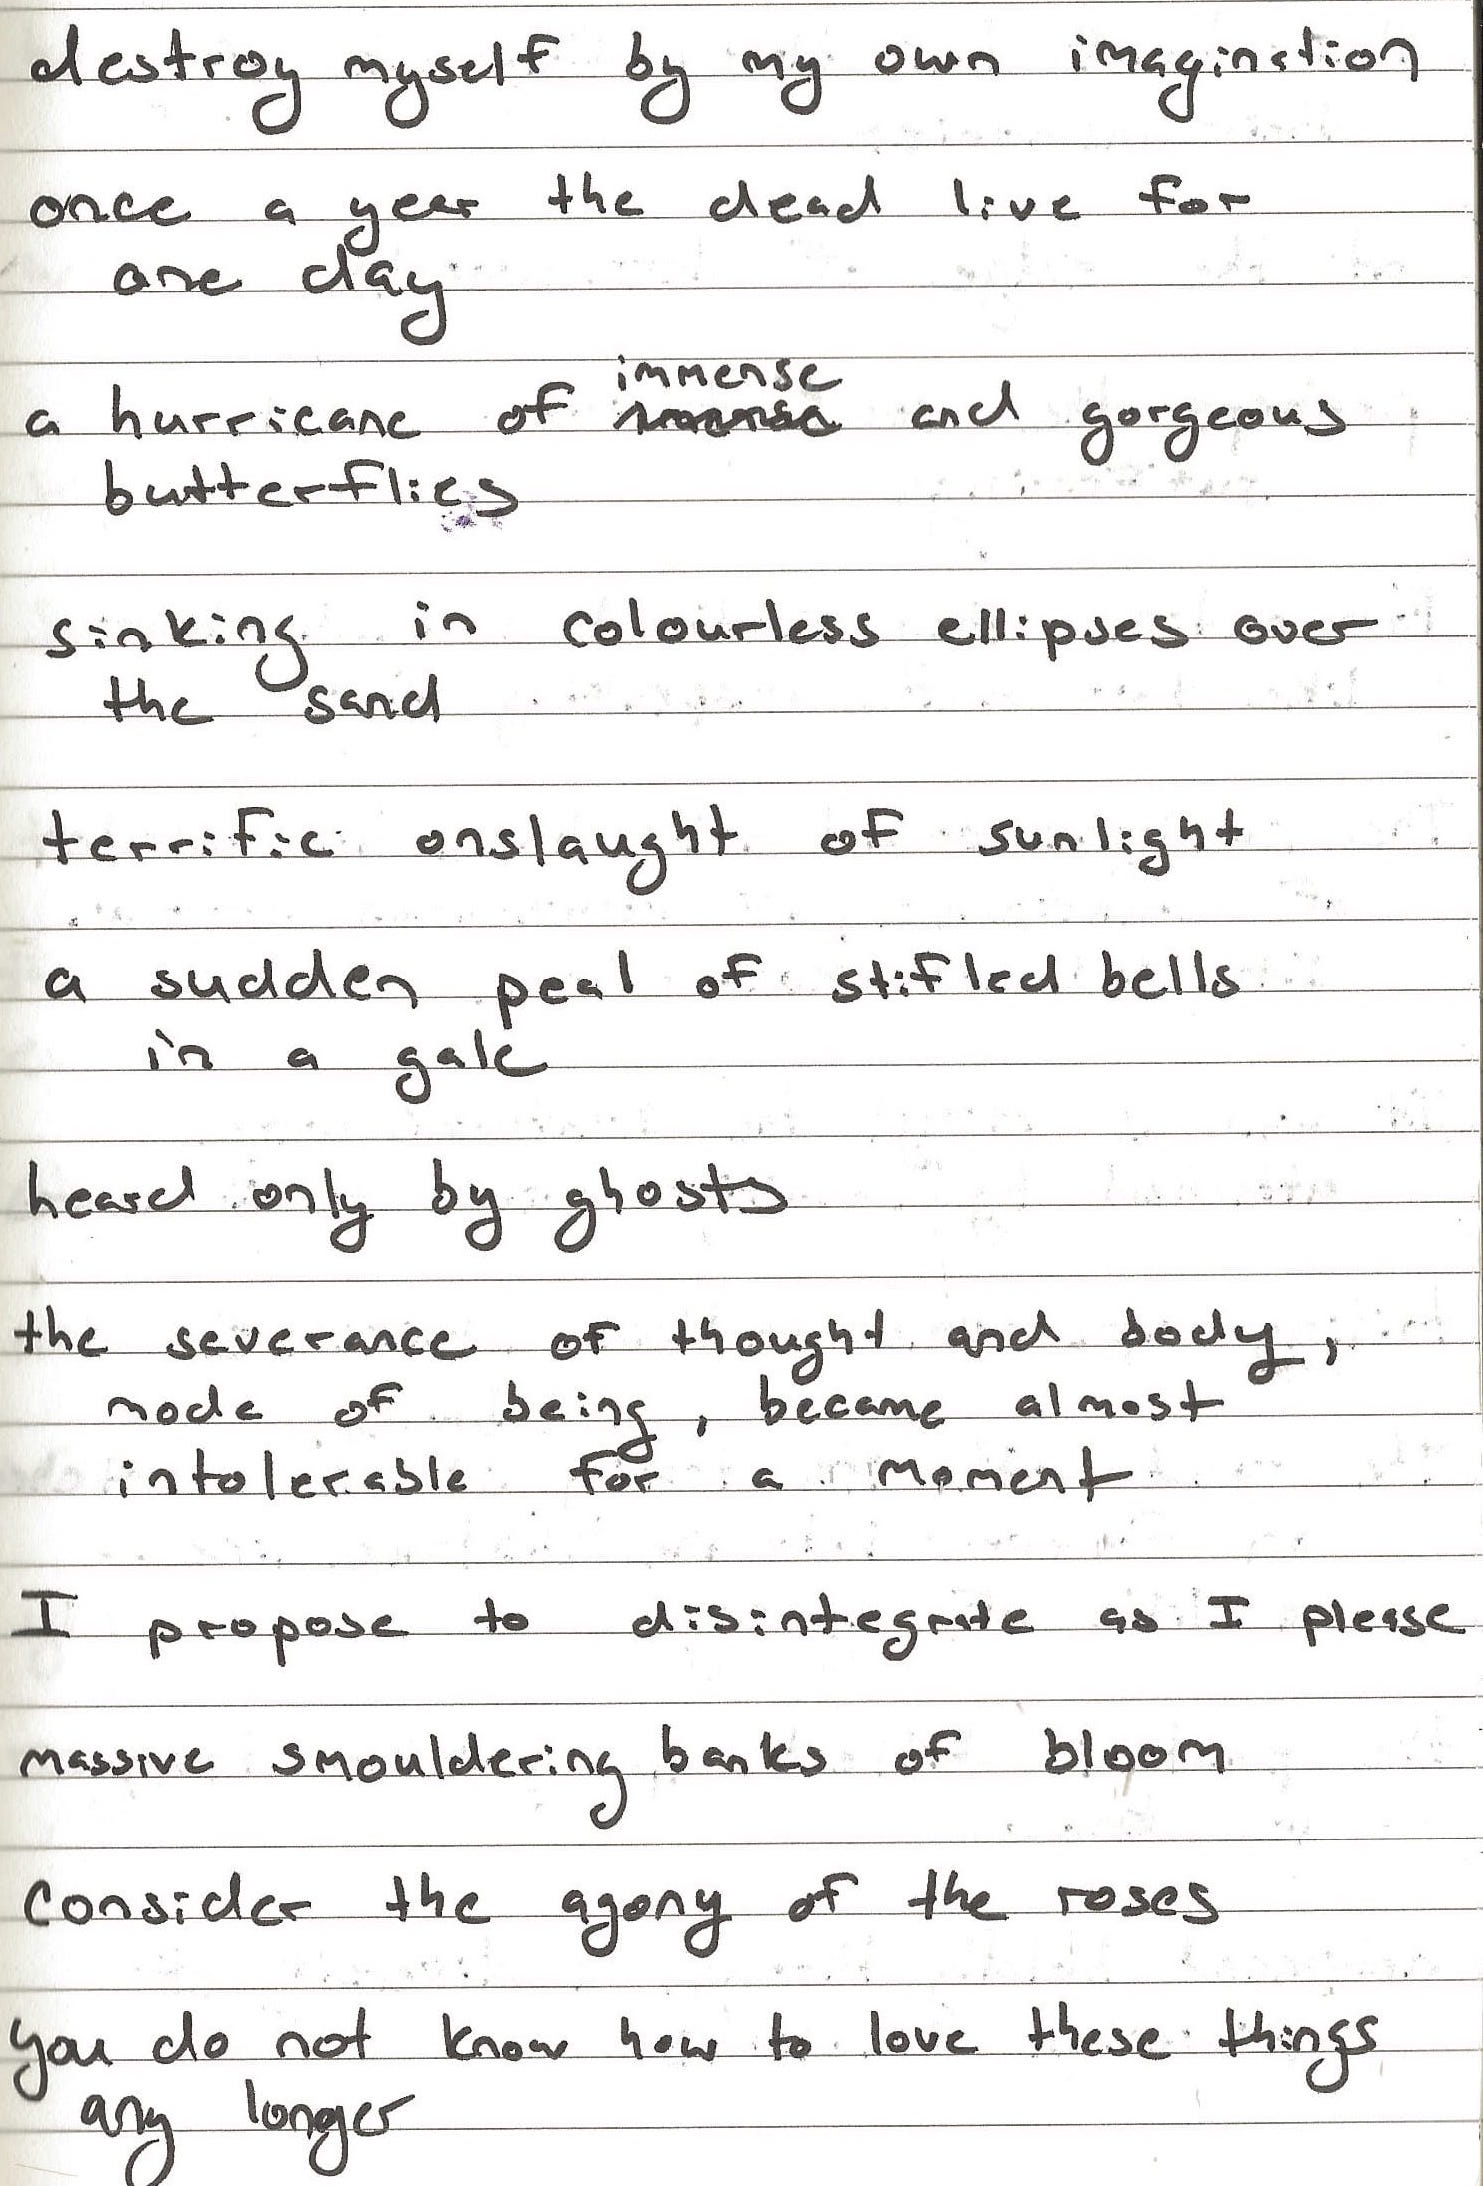 destroy myself by my own imagination
once a year the dead live for
one day
immense
a hurricane of and gorgeous
butterflies
sinking in colourless ellipses over
the sand
terrific onslaught of sunlight
a sudden peal of stifled bells
in a gale
heard only by ghosts
the severance of thought and body,
mode of being, became almost
intolerable for a moment
I propose to disintegrate as I please
massive smouldering banks of bloom
consider the agony of the roses
you do not know how to love these things
any longer